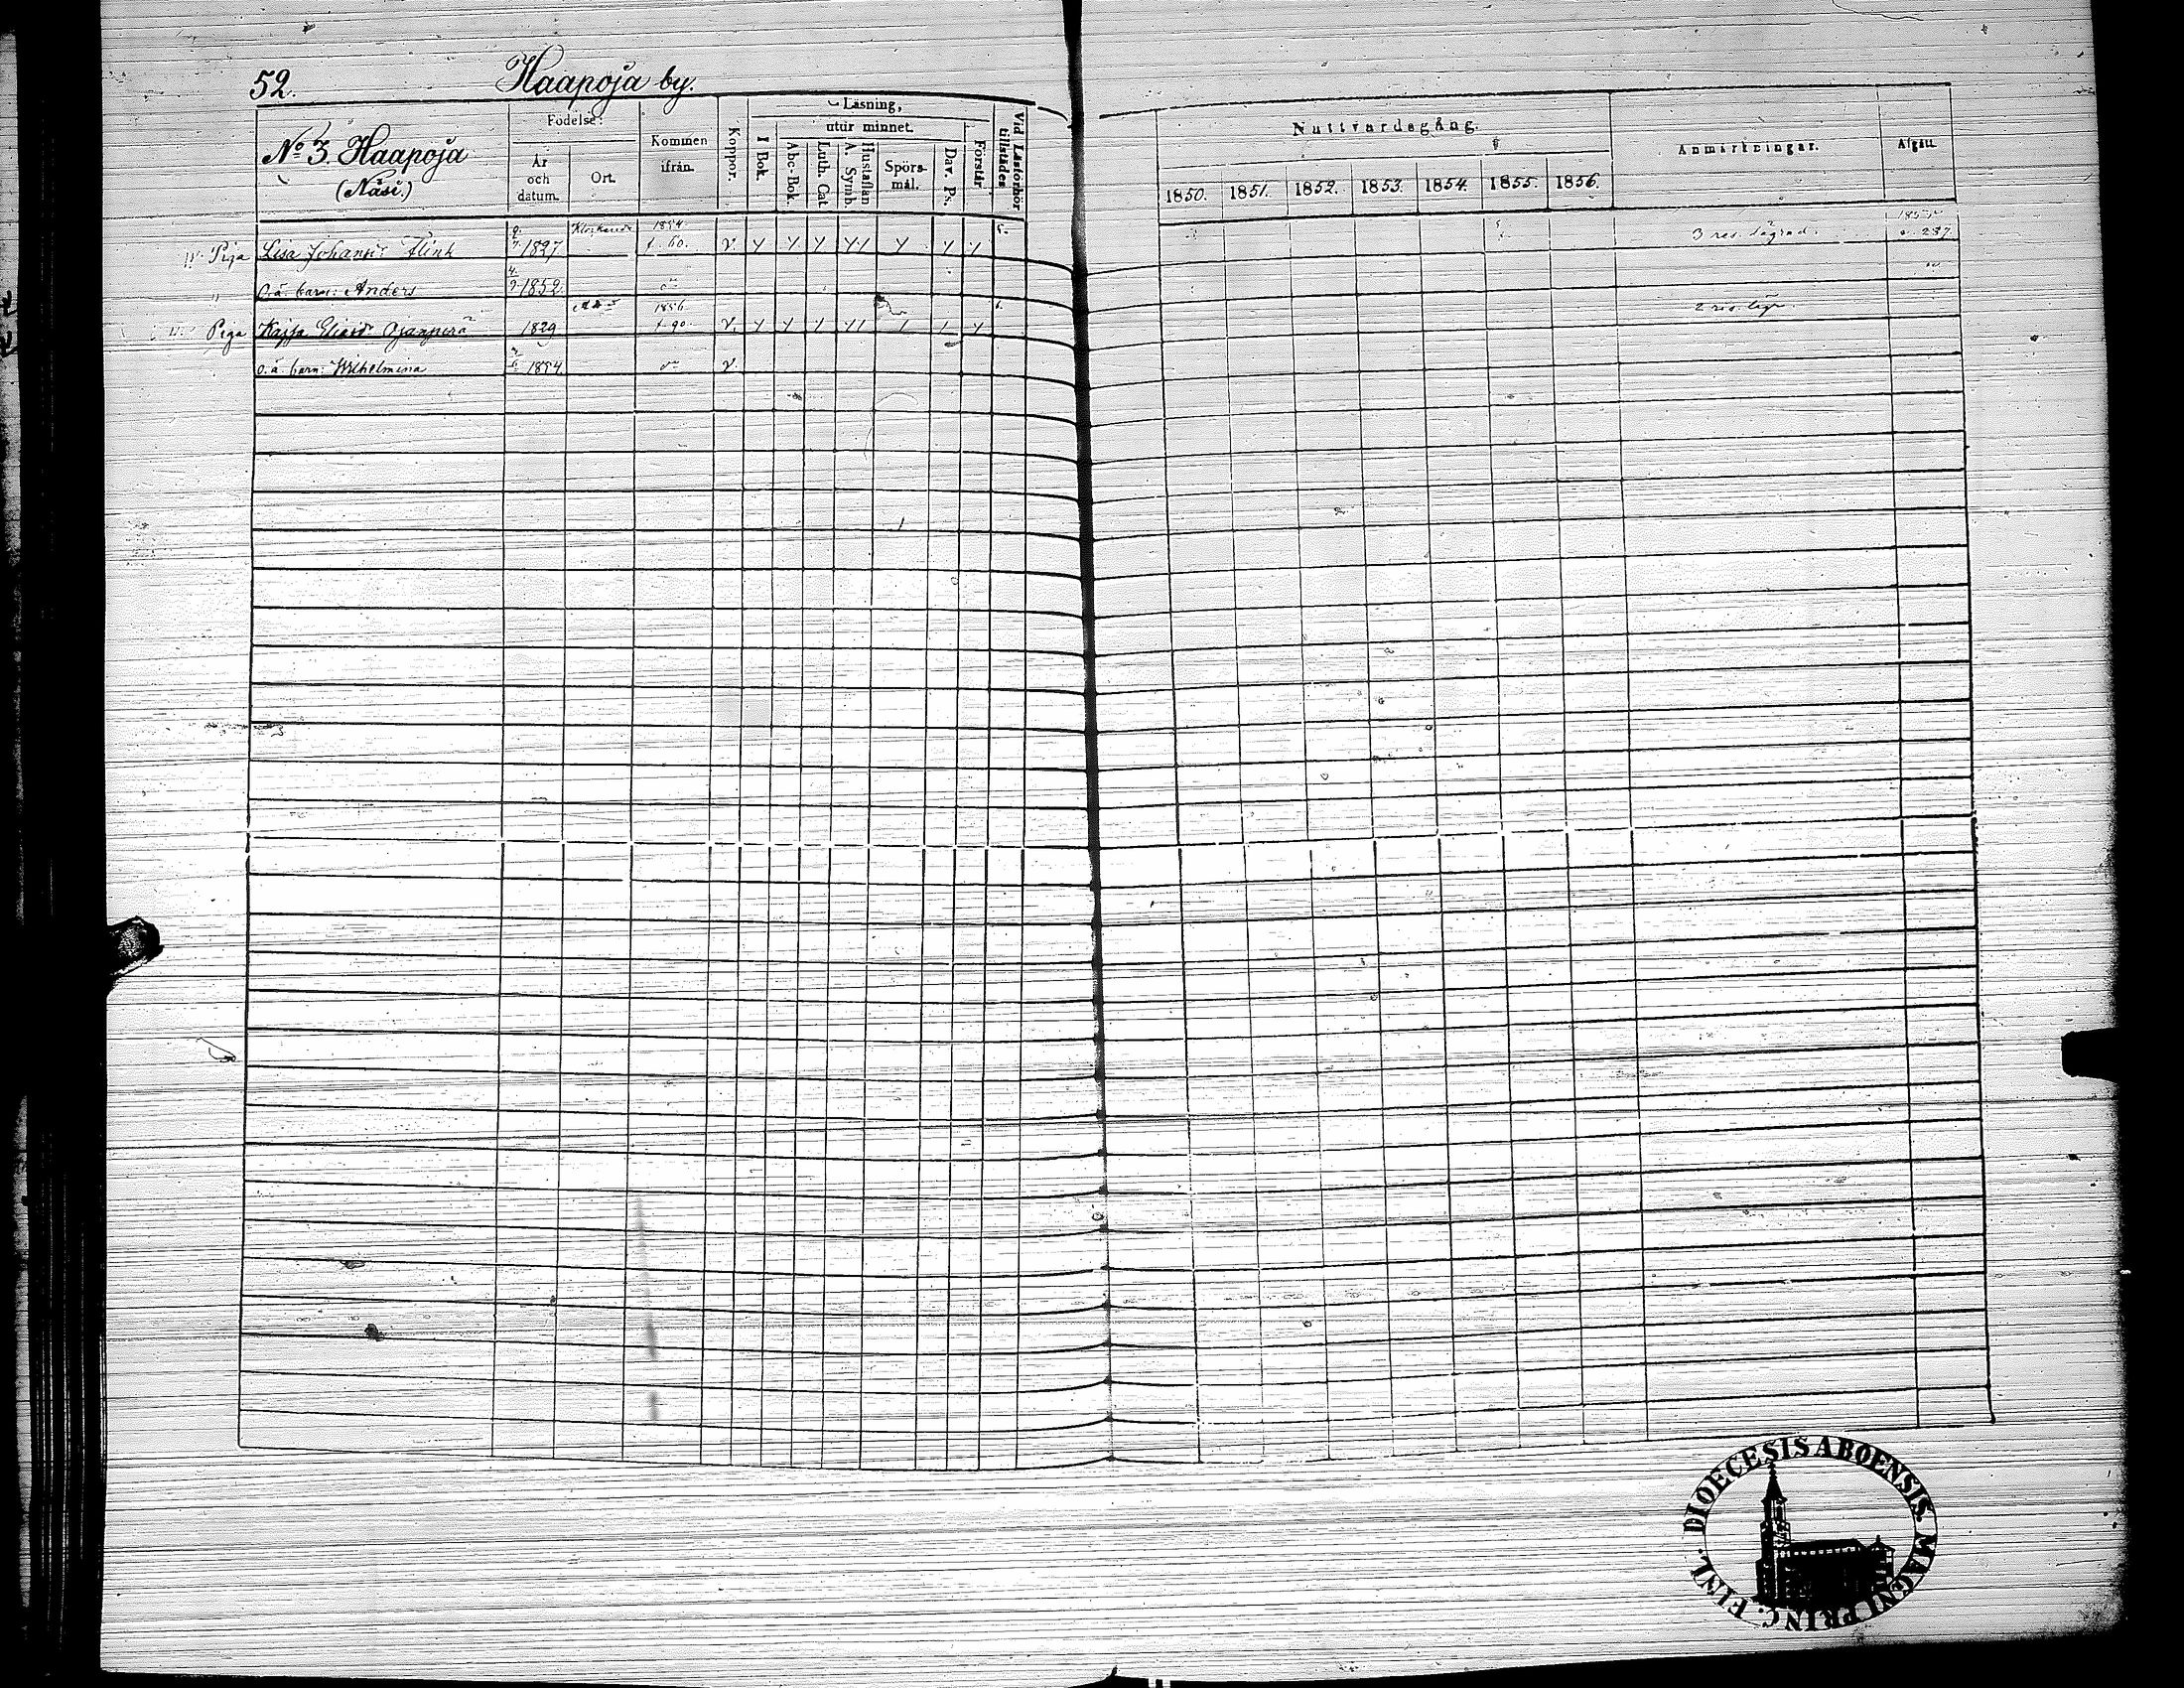 52.
Haapoja by.
No 3. Haapoja
(Näsi.)
Födelse:
År
och
datum.
Ort.
Kommen
ifrån.
Koppor.
Läsning,
I Bok.
utur minnet.
Abc-Bok.
Luth. Cat
A. Symb.
Hustaflan
Spörs-
mål.
Dav. Ps.
Förstår
Vid Läsförhör
tillstädes
Nattvardsgång.
1850. 1851. 1852. 1853. 1854. 1855. 1856.
Anmärkningar.
Afgått.
Piga Lisa Johansdr Flink 1827 1854 f. 60. v. 3 res. lägrad. 237
o. ä. barn: Anders 1852
Piga Kajsa 1829 1856 f. 90 v. 2 res. lägr.
o. ä. barn: Wilhelmina 1854 v.
DIOECESIS ABOENSIS. MAGNI PRINC. FINL.